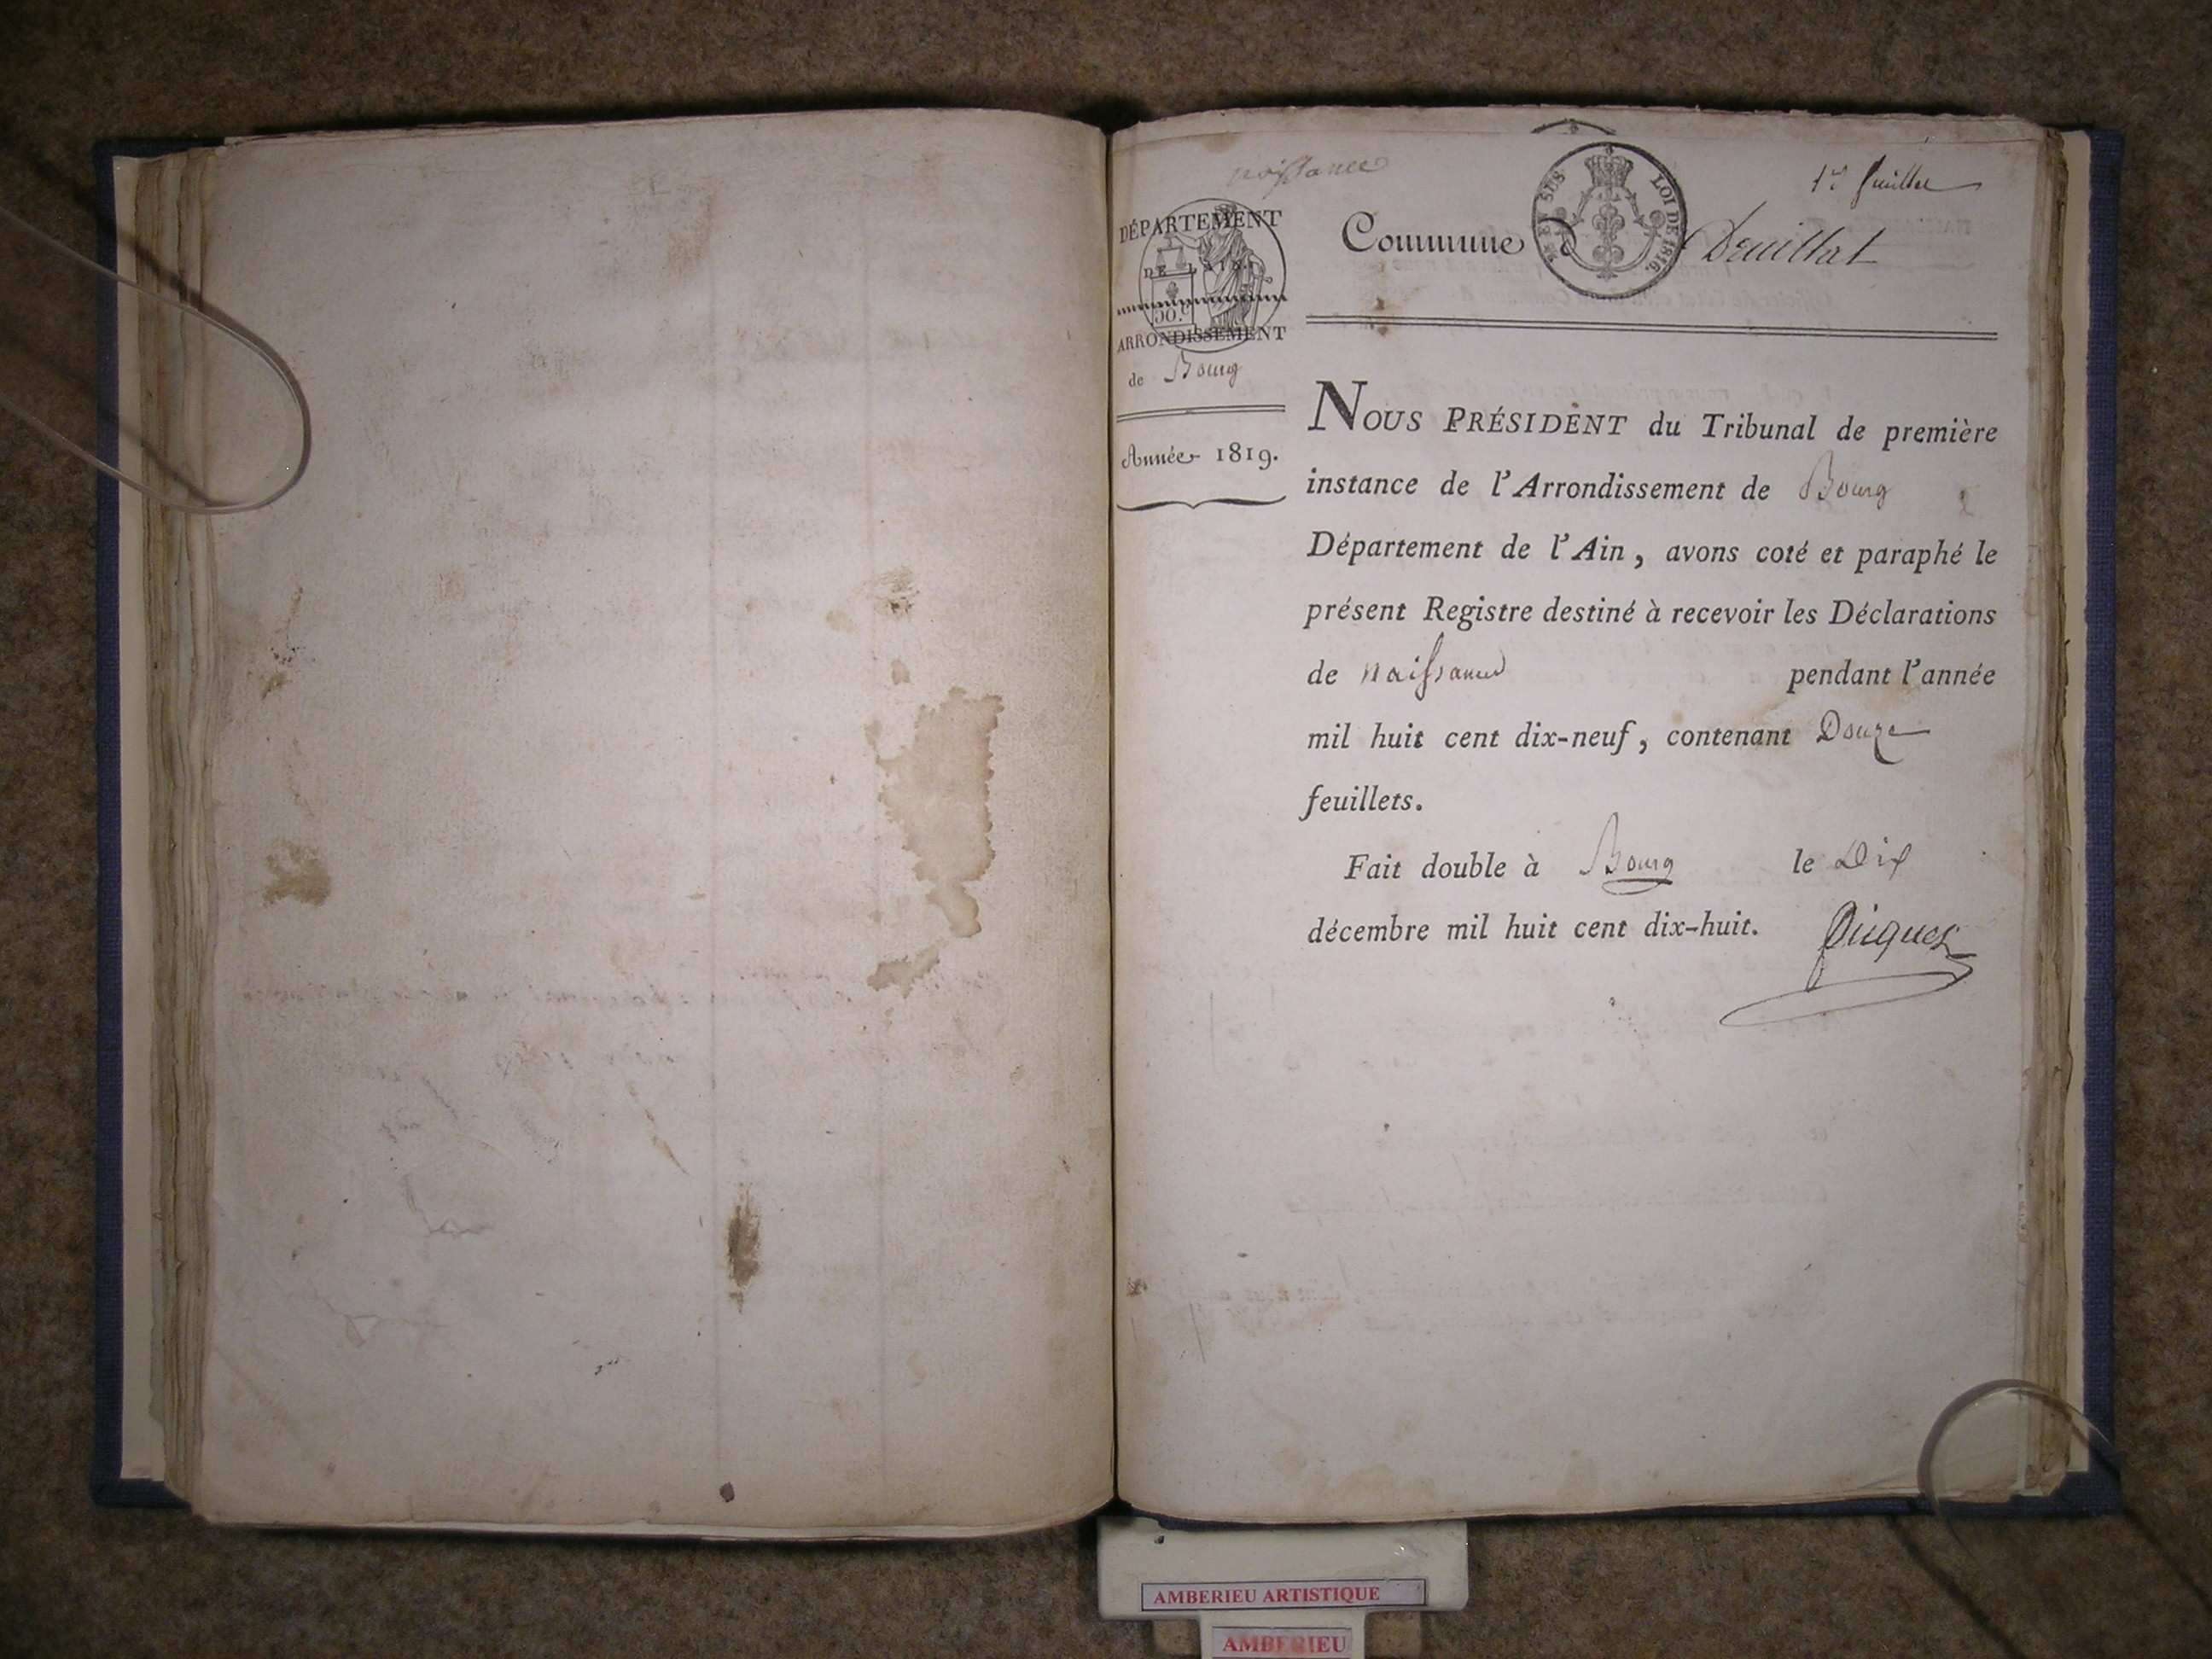 naissance
1er feuillet
DÉPARTEMENT
DE L'AIN.
50.c
ARRONDISSEMENT
de Bourg
Année 1819.
Commune D
EN SUS LOI DE 1816.
Druillat
NOUS PRÉSIDENT du Tribunal de première
instance de l'Arrondissement de Bourg
Département de l'Ain, avons coté et paraphé le
présent Registre destiné à recevoir les Déclarations
de naissance pendant l'année
mil huit cent dix-neuf, contenant Douze
feuillets.
Fait double à Bourg le Dix
décembre mil huit cent dix-huit.
AMBERIEU ARTISTIQUE
AMBERIEU